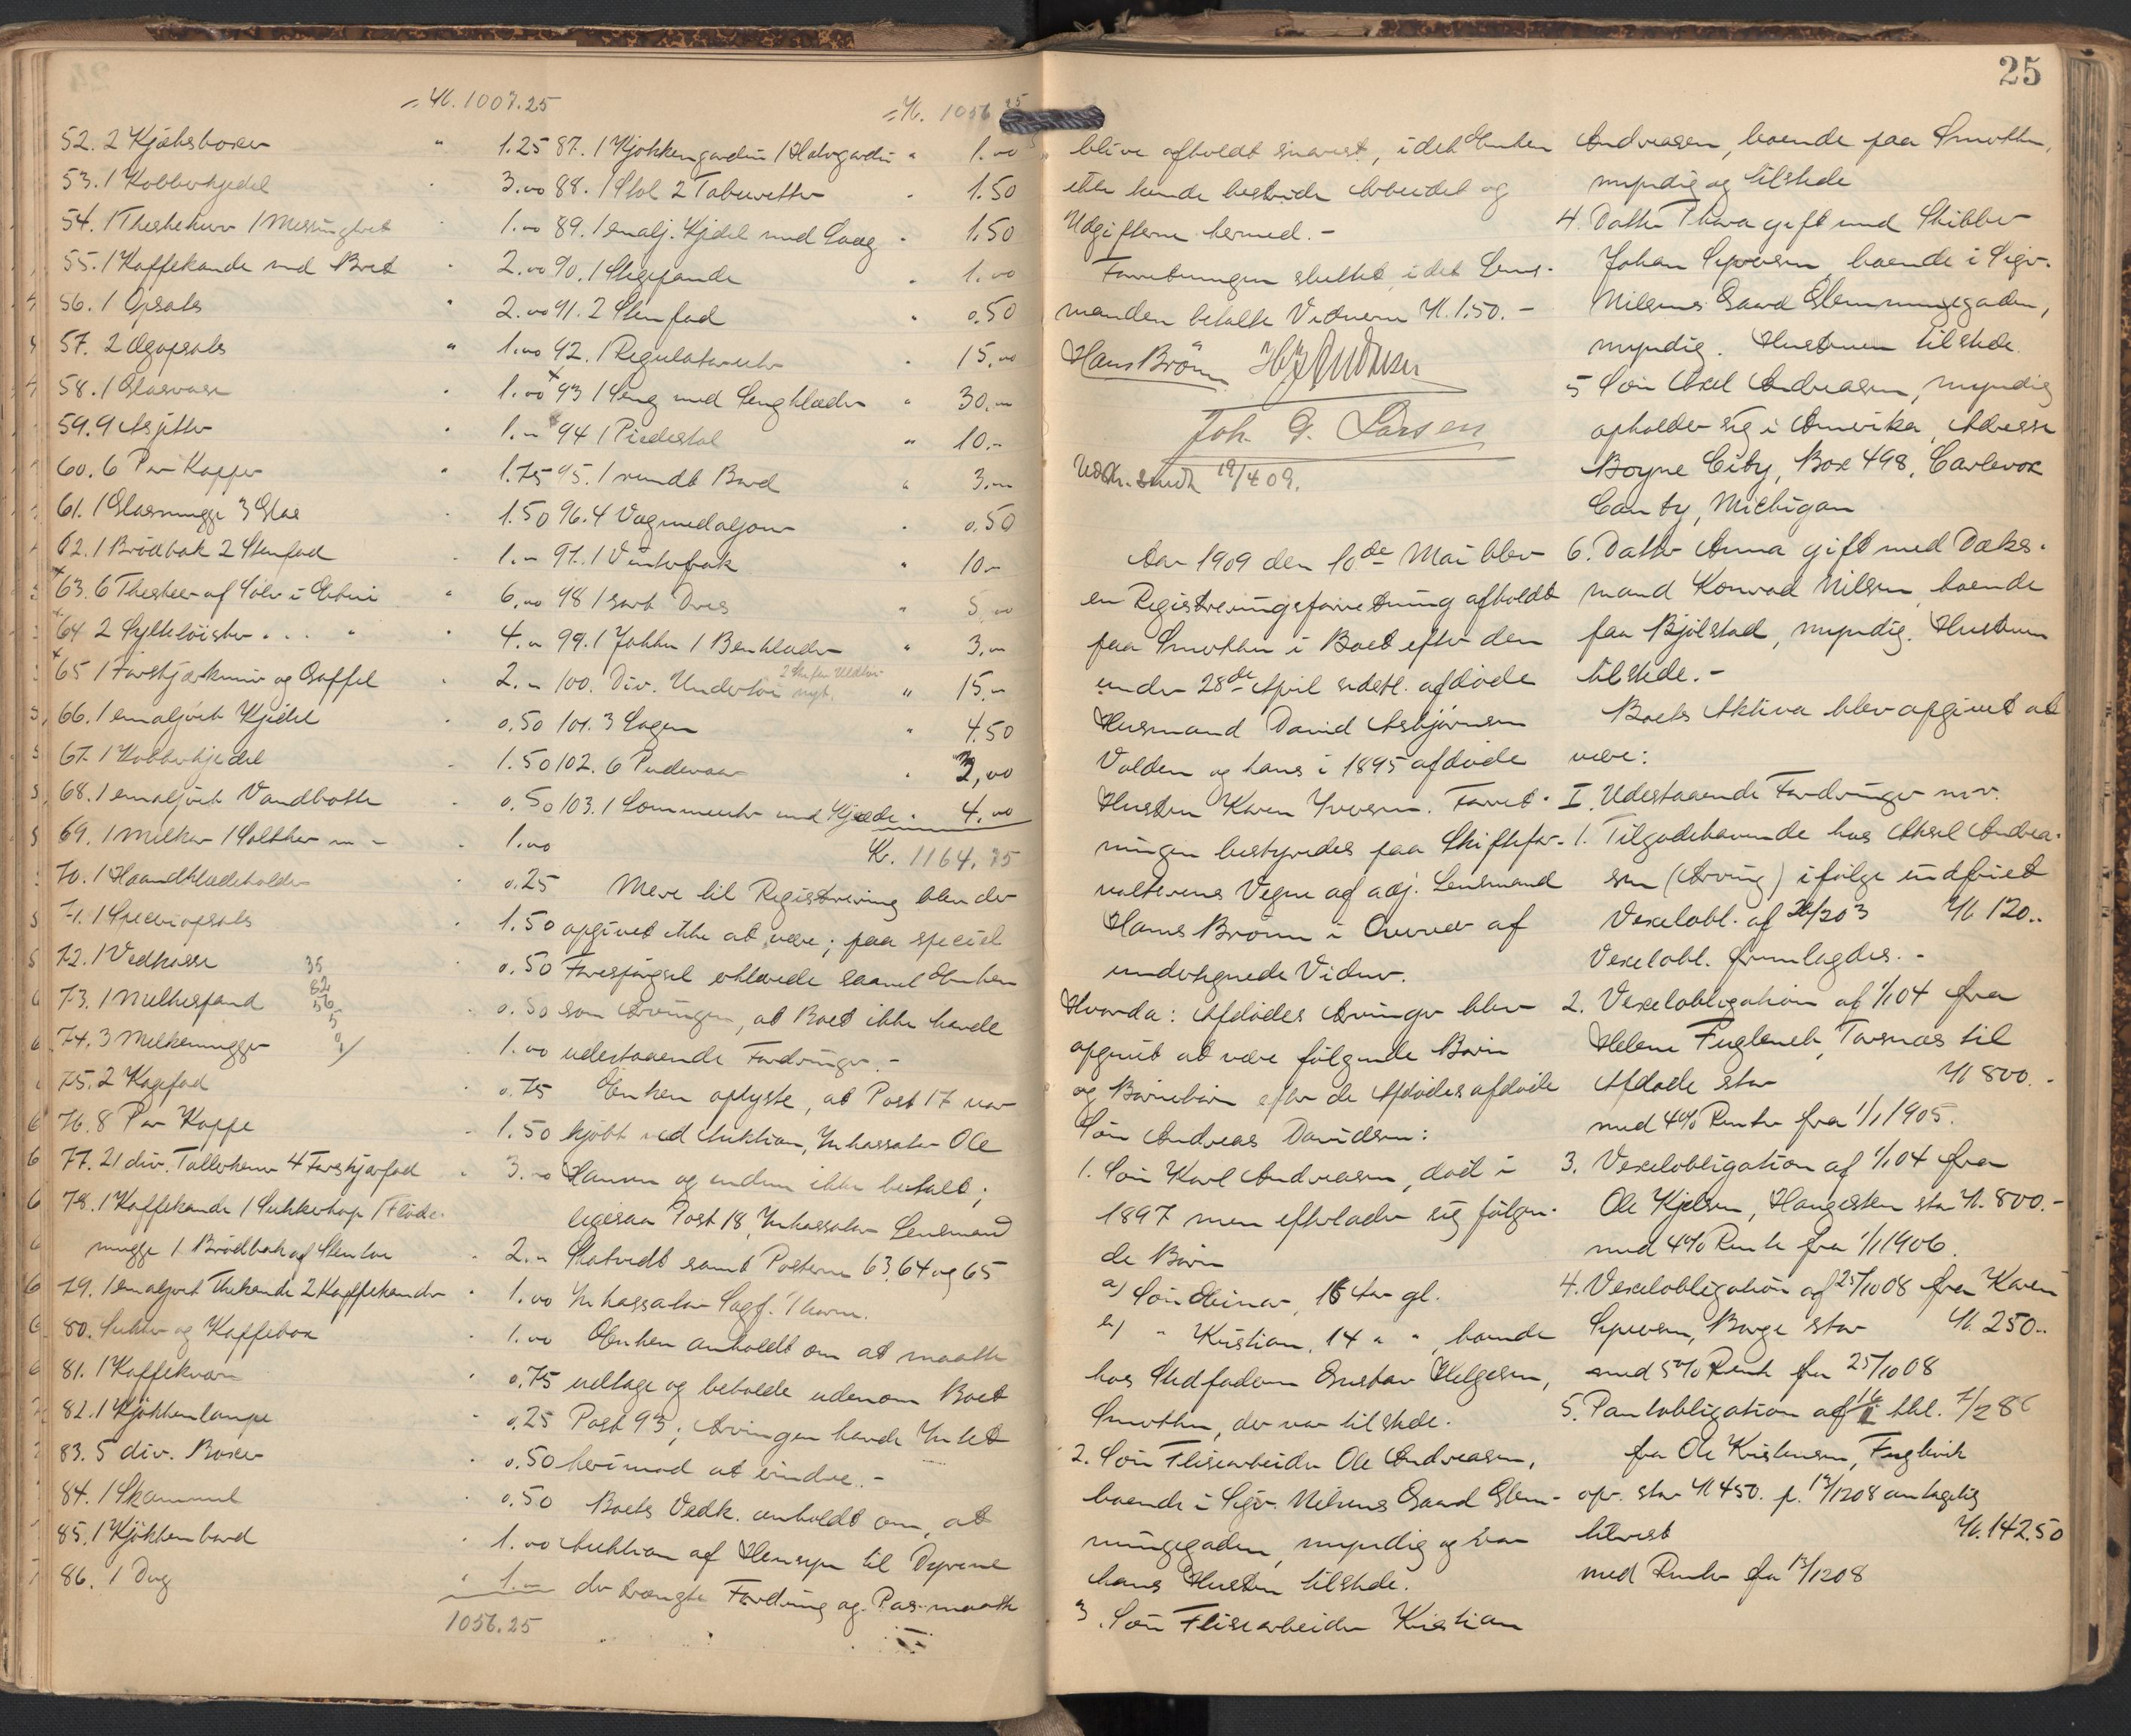 25
Kr. 1007.25
52. 2 Kjøksboxer " 1.25
53. 1 Kobberkjedel " 3.00
54. 1 Theskekurv 1 Messingbret " 1.00
55. 1 Kaffekande med Bret " 2.00
56. 1 Opsats " 2.00
57. 2 Ægopsats " 1.00
58. 1 Glasvase " 1.00
59. 9 Asjetter " 1.-
60. 6 Par Kopper " 1.75
61. 1 Glasmugge 3 Glas " 1.50
62. 1 Brødbak 2 Stenfad " 1.-
63. 6 Theskeer af Sølv i Etui " 6.00
64. 2 Sylteløisker . . . " " 4.-
65 1 Forskjærkniv og Gaffel " 2.-
66. 1 emaljert Kjedel " 0.50
67. 1 Kobberkjedel " 1.50
68. 1 emaljert Vandbøtte " 0.50
69. 1 Melkar 1 Saltkar m - " 1.00
70. 1 Haandklædeholder " 0.25
71. 1 Speceriopsats " 1.50
72. 1 Vedkasse " 0.50
73. 1 Melkespand " 0.50
74. 3 Melkemugger " 1.00
75. 2 Kagefad " 0.75
76. 8 Par Kopper " 1.50
77. 21 div. Tallerkener 4 Forskjærfad " 3.00
78. 1 Kaffekande 1 Sukkerkop 1 Fløde-
mugge 1 Brødbak af Stentøi " 2.-
79. 1 emaljert Thekande 2 Kaffekander " 1.00
80. Sukker og Kaffebox " 1.00
81. 1 Kaffekværn " 0.75
82. 1 Kjøkkenlampe " 0.25
83. 5 div. Boxer " 0.50
84. 1 Skammel " 0.50
85. 1 Kjøkkenbord " 1.00
86. 1 Dug " 1.-
1056.25
Kr. 1056.25
87. 1 Kjøkkengardin 1 Halvgardin " 1.00
88. 1 Stol 2 Taburetter " 1.50
89. 1 emalj. Kjedel med Laag " 1.50
90. 1 Stegepande " 1.00
91. 2 Stenfad " 0.50
92. 1 Regulatoruhr " 15.00
93 1 Seng med Sengklæder " 30.-
94 1 Piedestal " 10.-
95. 1 rundt Bord " 3.-
96. 4 Vægmedaljoner " 0.50
97. 1 Vinterfrak " 10.-
98 1 sort Dres " 5.00
99. 1 Jakke 1 Benklæder " 3.-
100. Div. Undertøi nyt. " 15.-
101. 3 Lagen " 4.50
102. 6 Pudevaar " 3,00
103. 1 Lommeuhr med Kjæde " 4.00
Kr. 1164.75
Mere til Registrering blev der
opgivet ikke at være; paa speciel
Forespørgsel erklærede saavel Enken
som Arvingen, at Boet ikke havde
udestaaende Fordringer. -
Enken oplyste, at Post 17 var
kjøbt ved Auktion, Inkassator Ole
Hansen og endnu ikke betalt;
ligesaa Post 18, Inkassator Lensmand
Skatvedt samt Posterne 63, 64 og 65
Inkassator Sagf. Thorne.
Enken anholdt om at maatte
udtage og beholde udenom Boet
Post 93; Arvingen havde Intet
herimod at erindre. -
Boets Vedk. anholdt om, at
Auktion af Hensyn til Dyrene
der trængte Fordring og Pas maatte
blive afholdt snarest, idet Enken
ikke kunde bestride Arbeidet og
Udgifterne hermed. -
Forretningen sluttet, idet Lens-
manden betalte Vidnerne Kr. 1.50. -
Hans Brønn H. J. Andersen
Joh. G. Larsen
Udskr. sendt 19/4 09.
Aar 1909 den 10de Mai blev
en Registreringsforretning afholdt
paa Smerthu i Boet efter den
under 28de April sidstl. afdøde
Husmand David Asbjørnsen
Volden og hans i 1895 afdøde
Hustru Karen Iversen. Forret-
ningen bestyredes paa Skiftefor-
valterens Vegne af adj. Lensmand
Hans Brønn i Overvær af
undertegnede Vidner.
Hvorda: Afdødes Arvinger blev
opgivet at være følgende Børn
og Børnebørn efter de Afdødes afdøde
Søn Andreas Davidsen:
1. Søn Karl Andreasen, død i
1897 men efterlader sig følgen-
de Børn
a) Søn Einar, 16 Aar gl.
b) " Kristian, 14 " ", boende
hos Stedfaderen Gustav Helgesen,
Smerthu, der var tilstede.
2. Søn Flisearbeider Ole Andreasen,
boende i Sigv. Nilsens Gaard Glem-
mingegaden, myndig og var
hans Hustru tilstede.
3. Søn Flisearbeider Kristian
Andreasen, boende paa Smerthu,
myndig og tilstede
4. Datter Thora gift med Skibber
Johan Syversen, boende i Sigv.
Nilsens Gaard Glemmingegaden,
myndig. Hustruen tilstede.
5 Søn Axel Andreasen, myndig
opholder sig i Amerika, Adresse
Boyne City, Box 498, Carlevox
Canty, Michigan
6. Datter Anna gift med Dæks-
mand Konrad Nilsen, boende
paa Bjølstad, myndig. Hustruen
tilstede. -
Boets Aktiva blev opgivet at
være:
I. Udestaaende Fordringer m.v.
1. Tilgodehavende hos Aksel Andrea-
sen (Arving) ifølge indfriet
Vexelobl. af 26/2 03 Kr. 120..
Vexelobl. fremlagdes. -
2. Vexelobligation af 1/1 04 fra
Helene Fuglevik, Torsnæs til
Afdøde stor Kr 800. -
med 4% Renter fra 1/1 1905.
3. Vexelobligation af 1/1 04 fra
Ole Kjelsen, Haugesten stor Kr. 800. -
med 4% Rente fra 1/1 1906.
4. Vexelobligation af 25/10 08 fra Karen
Syversen, Borge stor Kr. 250..
med 5% Rente fra 25/10 08
5. Pantobligation af 1/6 thl. 7/2 86
fra Ole Kristensen, Fuglevik
opr. stor Kr 450. p. 13/12 08 antagelig
tilrest Kr. 142.50
med Renter fra 13/12 08